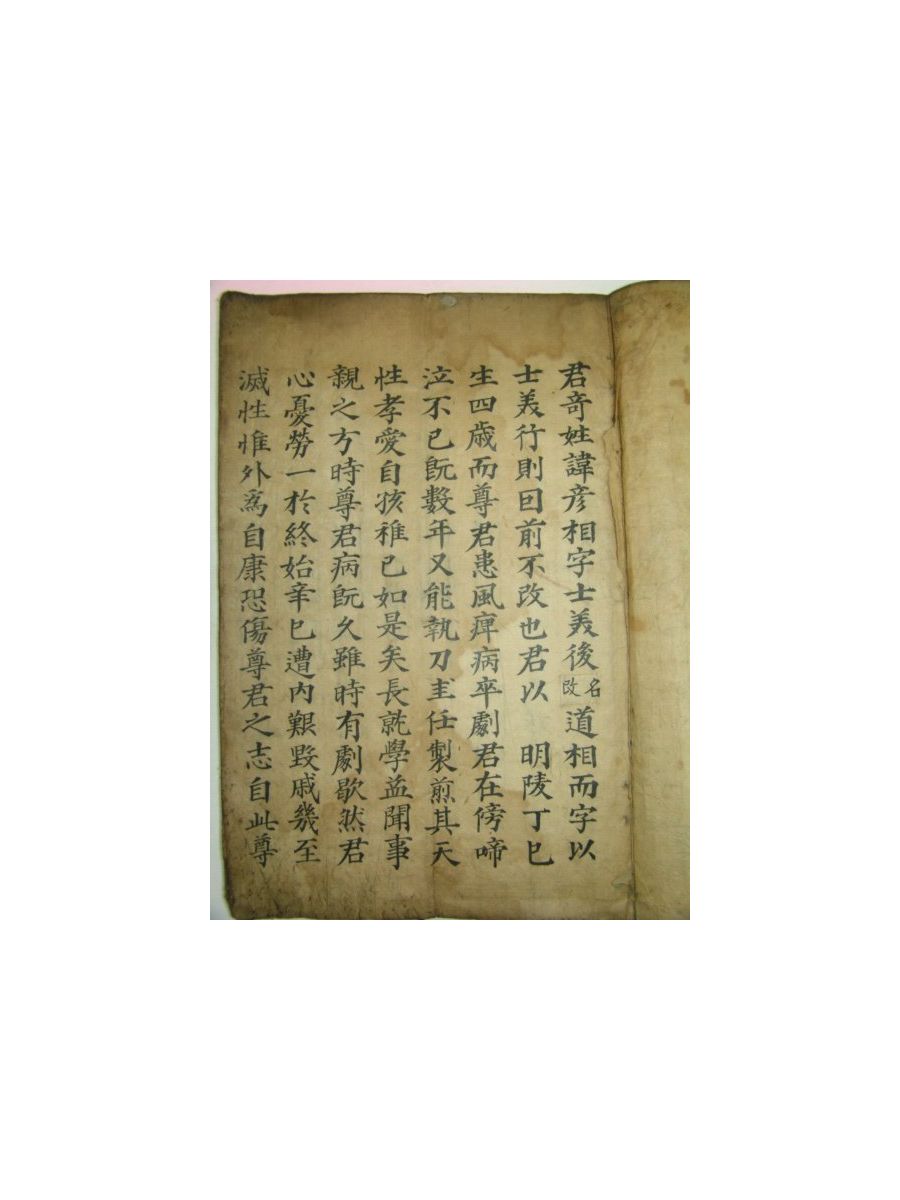 君奇姓諱彦相字士美後改名道相而字以
士美行則因前不改也君以 明陵丁巳
生四歲而尊君患風痺病卒劇君在傍啼
泣不已既數年又能執刀圭任製煎其天
性孝愛自孩稚已如是矣長就學益閑事
親之方時尊君病既久雖時有劇歇然君
心憂勞一於終始辛巳遭内艱毁戚幾至
滅性惟外爲自康恐傷尊君之志自此尊